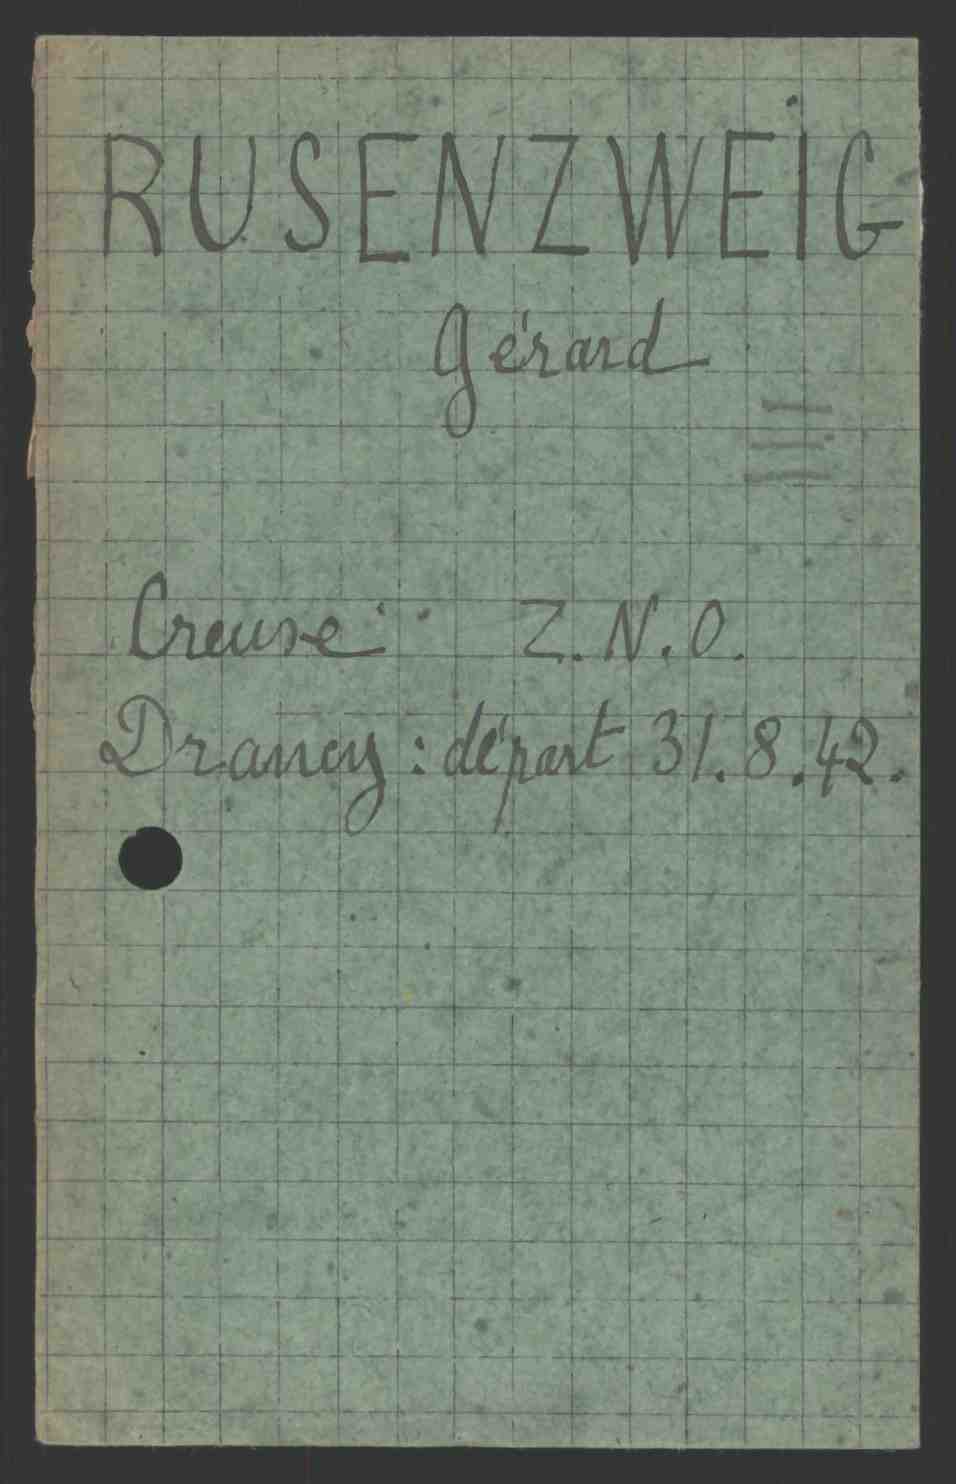 RUSENZWEIG
Gérard
Creuse : Z.N.O.
Drancy : départ 31.8.42.